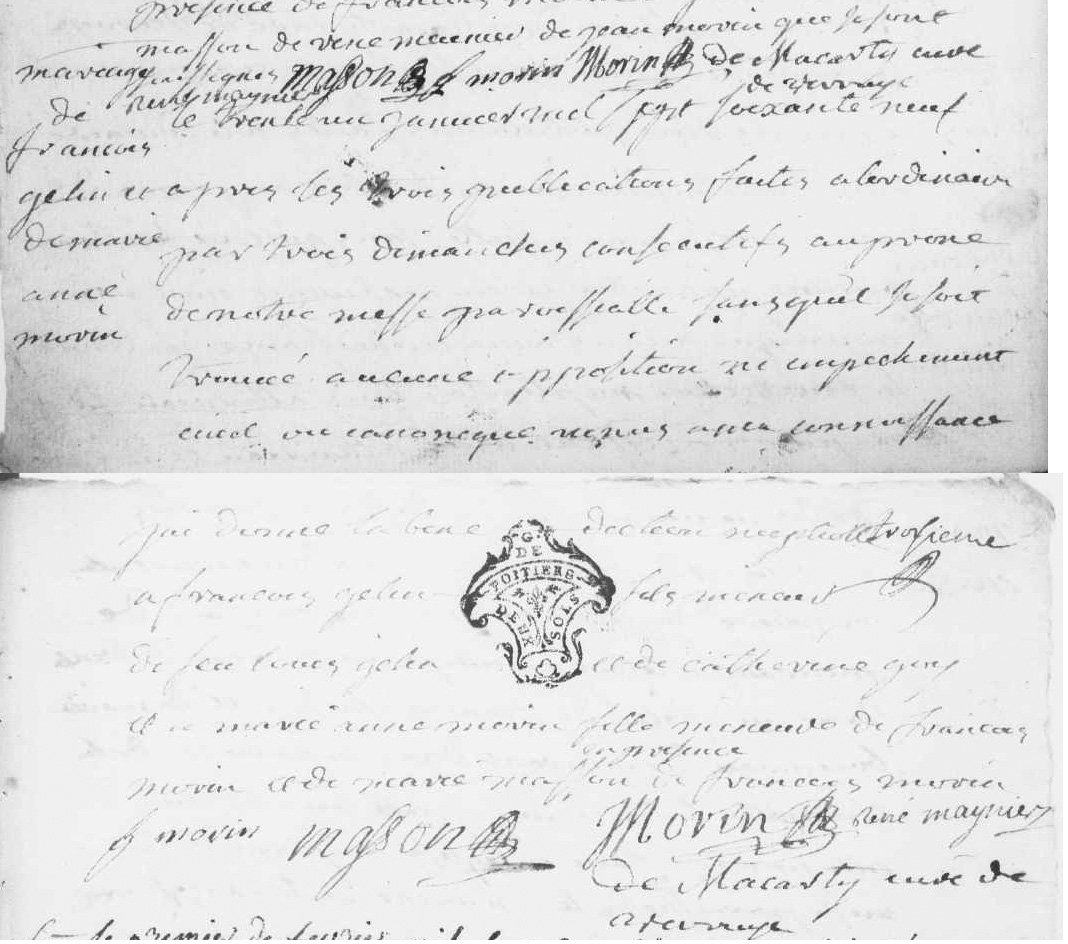 presence de francois
masson de rene meunier de jean morin que se sont
mariage soussignes masson f morin Morin de Macarty curé
de rené maynier de verruye
le trente un janvier mil sept soixante neuf
francois
gelin et apres les trois publications faites a lordinaire
de marie par trois dimanches consecutifs au prone
anne de notre messe paroissialle sans quil se soit
morin
trouvé aucune opposition ni empechement
civil ou canonique venus a ma connoissance
jai donné la bene diction nuptialle
troisieme
G. DE POITIERS
DEUX SOLS
a francois gelin fils mineur
de feu louis gelin et de catherine guy
et a marie anne morin fille mineure de francois
en presence
morin et de marie masson de francois morin
f morin masson Morin rené maynier
de Macarty curé de
verruye
le premier de fevrier